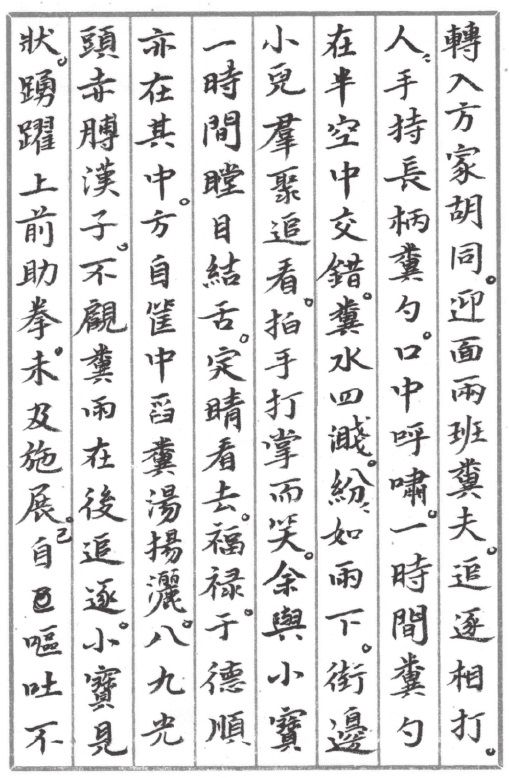 轉入方家胡同。迎面兩班糞夫。追逐相打。
人〻手持長柄糞勺。口中呼嘯。一時間糞勺
在半空中交錯。糞水四濺。紛〻如雨下。街邊
小兒羣聚追看。拍手打掌而笑。余與小寶
一時間瞠目結舌。定睛看去。福禄于德順
亦在其中。方自筐中舀糞湯揚灑。八九光
頭赤膊漢子。不顧糞雨在後追逐。小寶見
狀。踴躍上前助拳。未及施展。自己嘔吐不